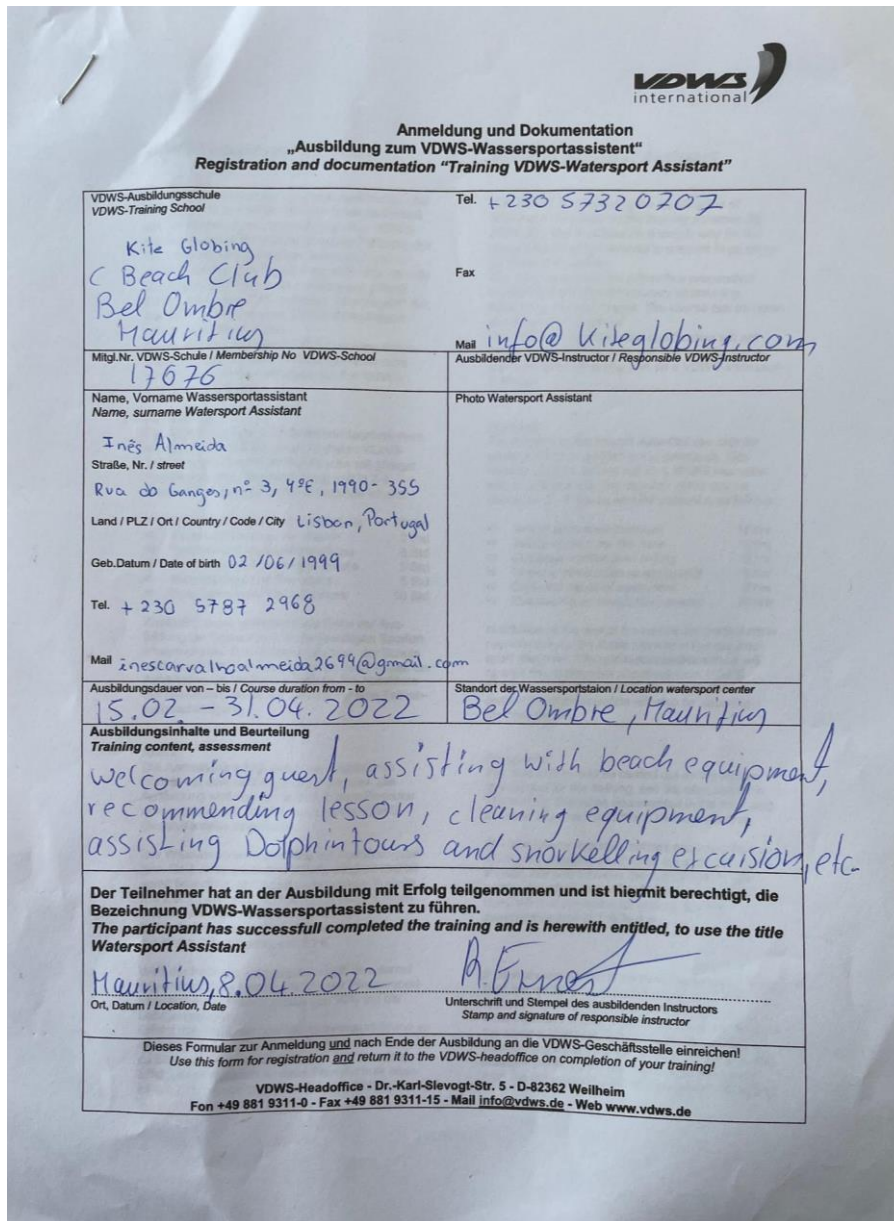 VDWS
international
Anmeldung und Dokumentation
„Ausbildung zum VDWS-Wassersportassistent“
Registration and documentation “Training VDWS-Watersport Assistant”
VDWS-Ausbildungsschule
VDWS-Training School
Kite Globing
C Beach Club
Bel Ombre
Mauritius
Tel. +230 57320707
Fax
Mail info@kiteglobing.com
Mitgl.Nr. VDWS-Schule / Membership No VDWS-School
17676
Ausbildender VDWS-Instructor / Responsible VDWS-Instructor
Name, Vorname Wassersportassistant
Name, surname Watersport Assistant
Inês Almeida
Straße, Nr. / street
Rua do Ganges, nº 3, 4ºE, 1990-355
Land / PLZ / Ort / Country / Code / City Lisbon, Portugal
Geb.Datum / Date of birth 02/06/1999
Tel. +230 5787 2968
Mail inescarvalhoalmeida2699@gmail.com
Photo Watersport Assistant
Ausbildungsdauer von – bis / Course duration from - to
15.02. - 31.04.2022
Standort der Wassersportstaion / Location watersport center
Bel Ombre, Mauritius
Ausbildungsinhalte und Beurteilung
Training content, assessment
Welcoming guest, assisting with beach equipment,
recommending lesson, cleaning equipment,
assisting Dolphintours and snorkelling excursion, etc.
Der Teilnehmer hat an der Ausbildung mit Erfolg teilgenommen und ist hiermit berechtigt, die
Bezeichnung VDWS-Wassersportassistent zu führen.
The participant has successfull completed the training and is herewith entitled, to use the title
Watersport Assistant
Mauritius, 8.04.2022
R. Ernest
Ort, Datum / Location, Date
Unterschrift und Stempel des ausbildenden Instructors
Stamp and signature of responsible instructor
Dieses Formular zur Anmeldung und nach Ende der Ausbildung an die VDWS-Geschäftsstelle einreichen!
Use this form for registration and return it to the VDWS-headoffice on completion of your training!
VDWS-Headoffice - Dr.-Karl-Slevogt-Str. 5 - D-82362 Weilheim
Fon +49 881 9311-0 - Fax +49 881 9311-15 - Mail info@vdws.de - Web www.vdws.de